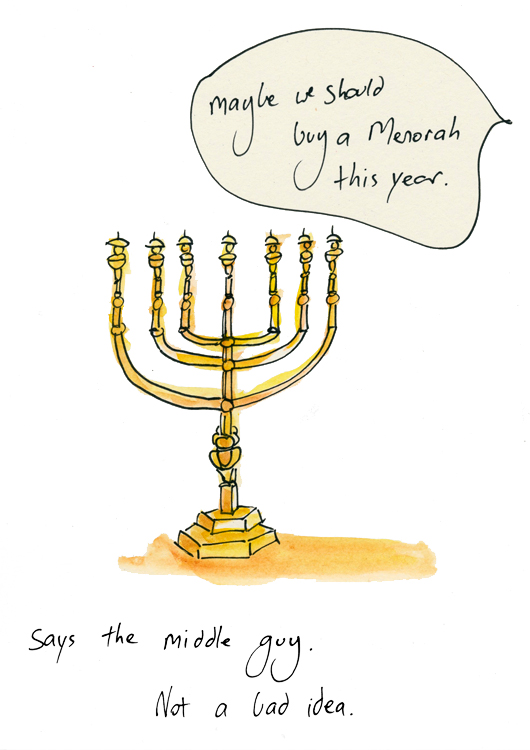 maybe we should
buy a Menorah
this year.
Says the middle guy.
Not a bad idea.